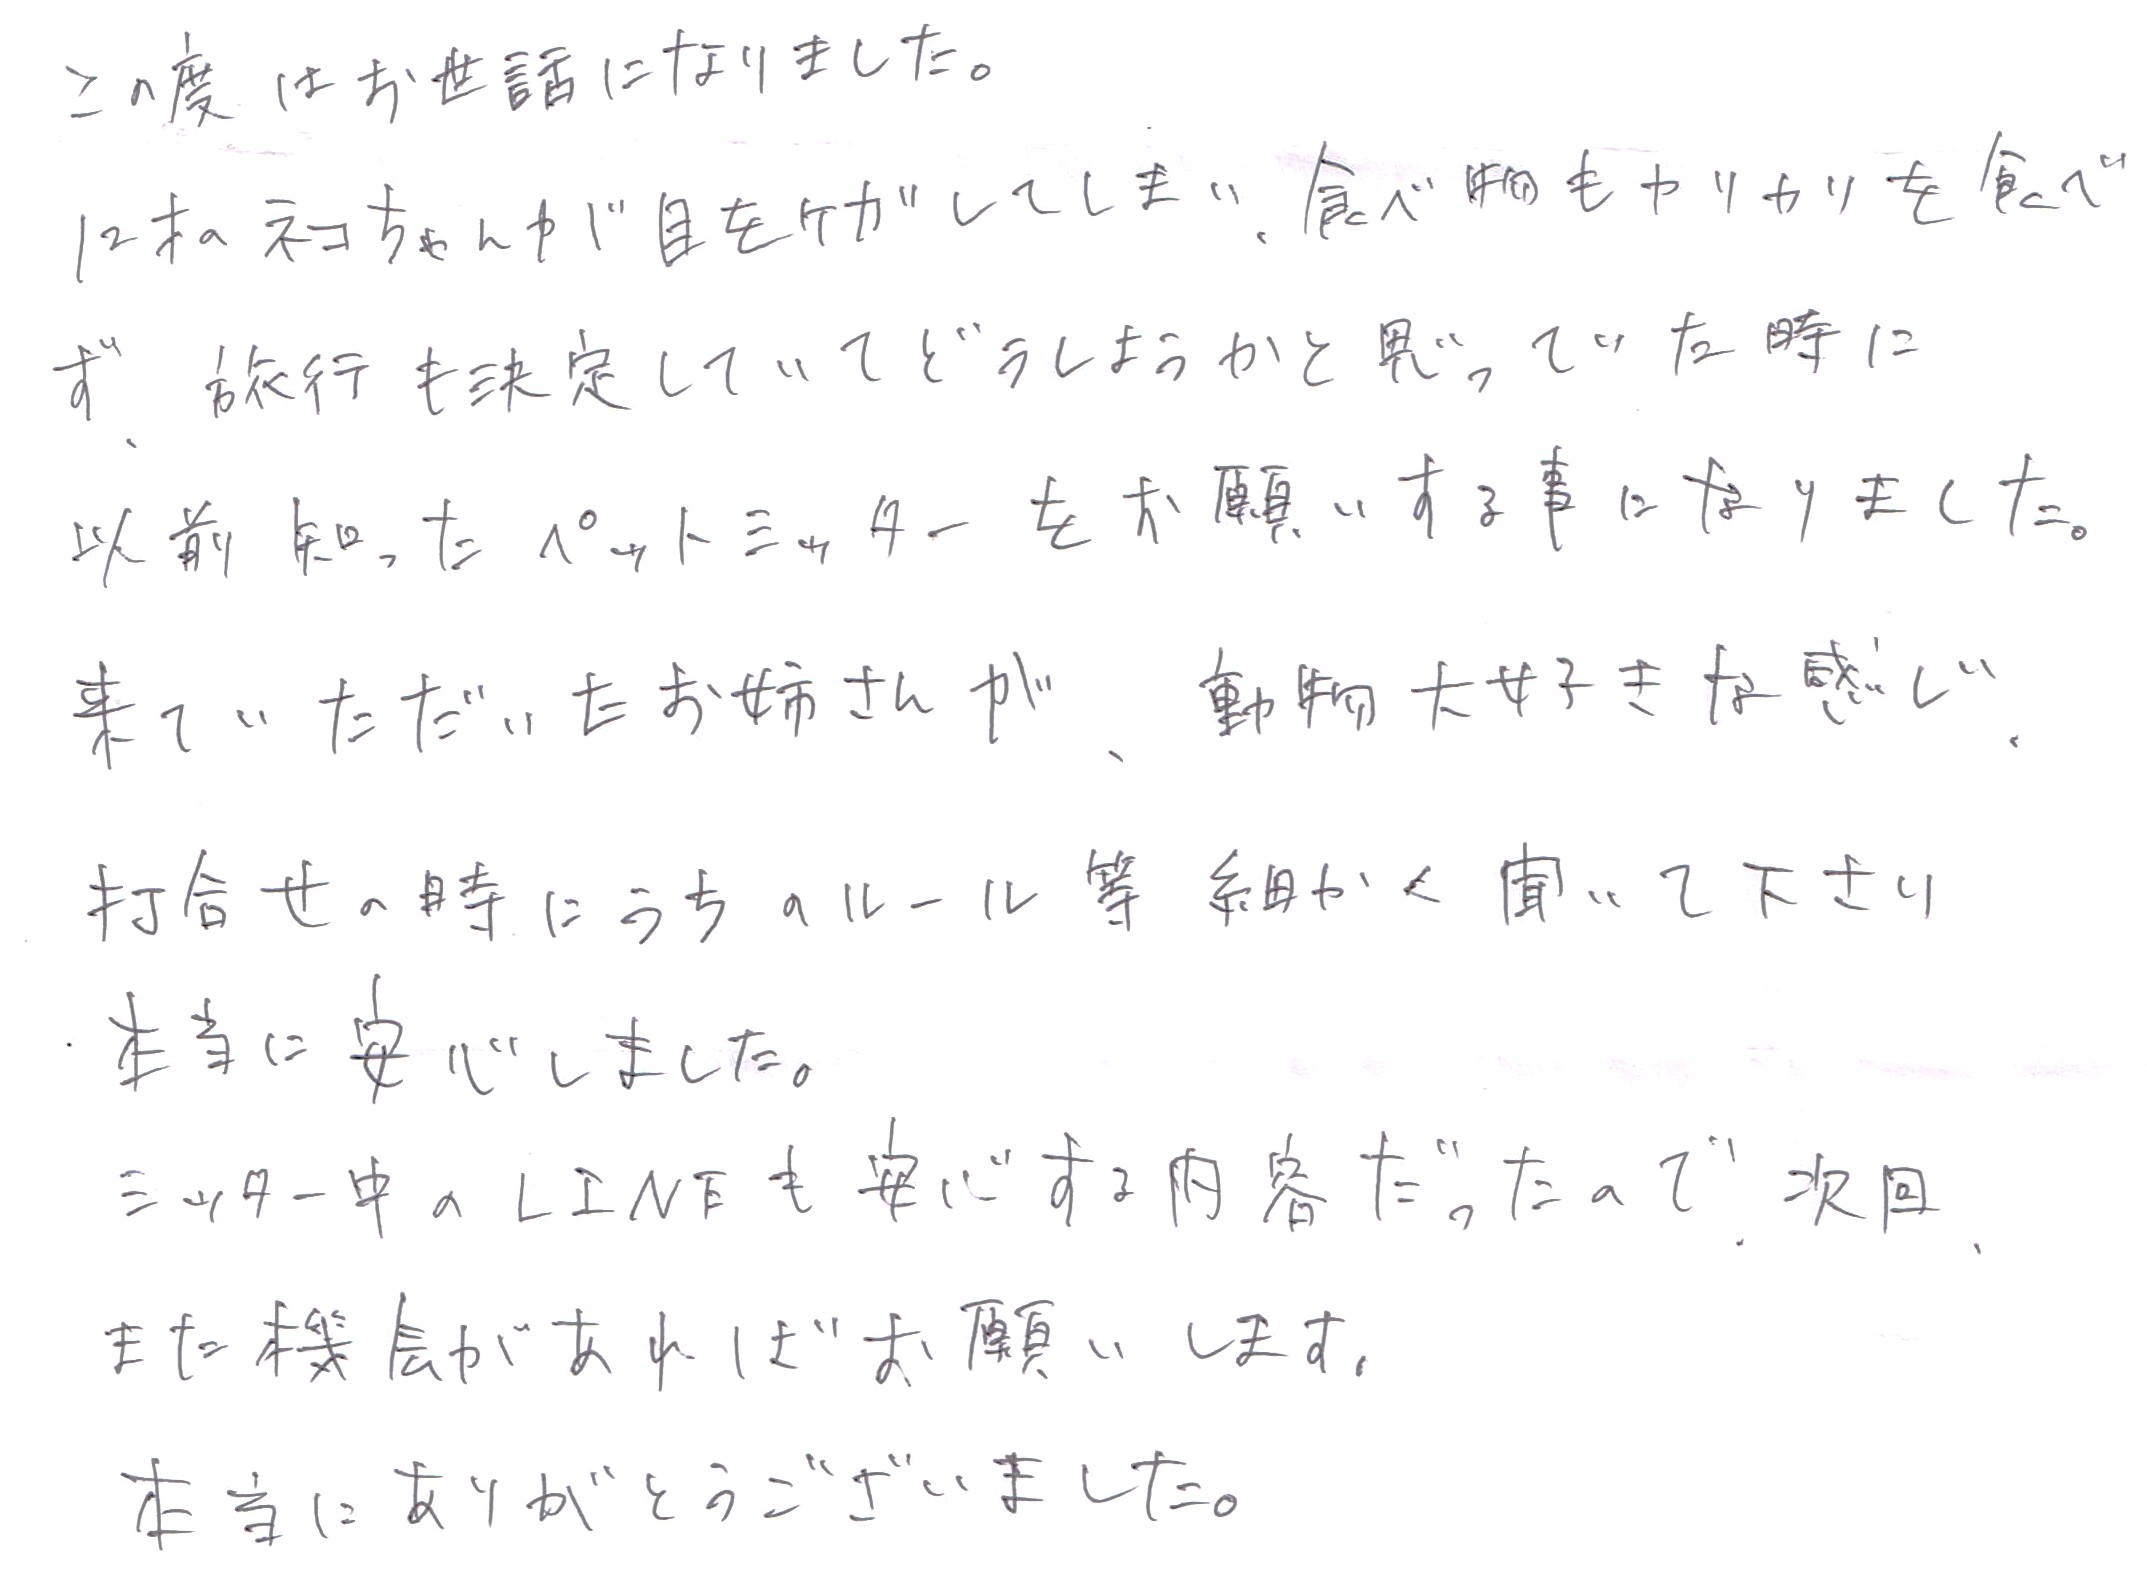 この度はお世話になりました。
12才のネコちゃんが目をケガしてしまい、食べ物もカリカリを食べ
ず、旅行も決定していてどうしようかと思っていた時に
以前知ったペットシッターをお願いする事になりました。
来ていただいたお姉さんが、動物大好きな感じ、
打合せの時にうちのルール等細かく聞いて下さり
本当に安心しました。
シッター中のLINEも安心する内容だったので、次回、
また機会があればお願いします。
本当にありがとうございました。